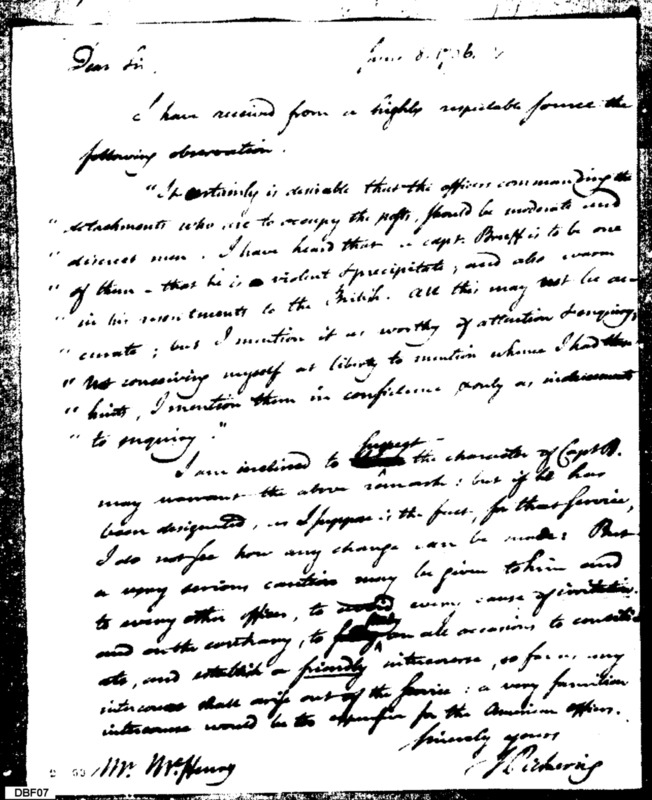 Dear Sir, June 8. 1796.
I have received from a highly respectable source the
following observation.
"It certainly is desirable that the officers commanding the
" detachments who are to occupy the posts, should be moderate and
" discreet men. I have heard that a capt. Bruff is to be one
" of them - that he is violent & precipitate, and also warm
" in his resentments to the British. All this may not be ac-
" curate; but I mention it as worthy of attention & enquiry.
" Not conceiving myself at liberty to mention whence I had these
" hints, I mention them in confidence & only as inducements
" to enquiry."
I am inclined to suspect the character of Capt. B.
may warrant the above remark: but if he has
been designated, as I suppose is the fact, for that service,
I do not see how any change can be made: But
a very serious caution may be given to him and
to every other officer, to avoid every cause of irritation.
and on the contrary, to on all occasions to concili-
ate, and establish a friendly intercourse, so far as any
intercourse shall arise out of the service: a very familiar
intercourse would be too expensive for the American officers.
Sincerely yours
Mr. McHenry T Pickering
DBF07